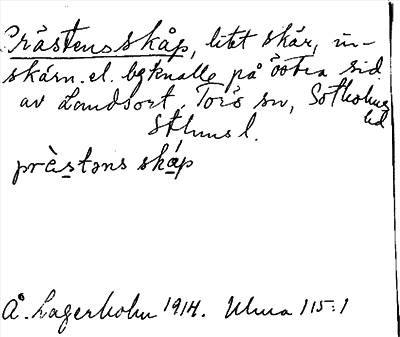 Prästens skåp, litet skär, in-
skärn. el. bgknalle på östra sid
av Landsort. Torö sn, Sotholms
hd
Sthlms l.
prä̀stəns skáp
Å. Lagerholm 1914. Ulma 115:1